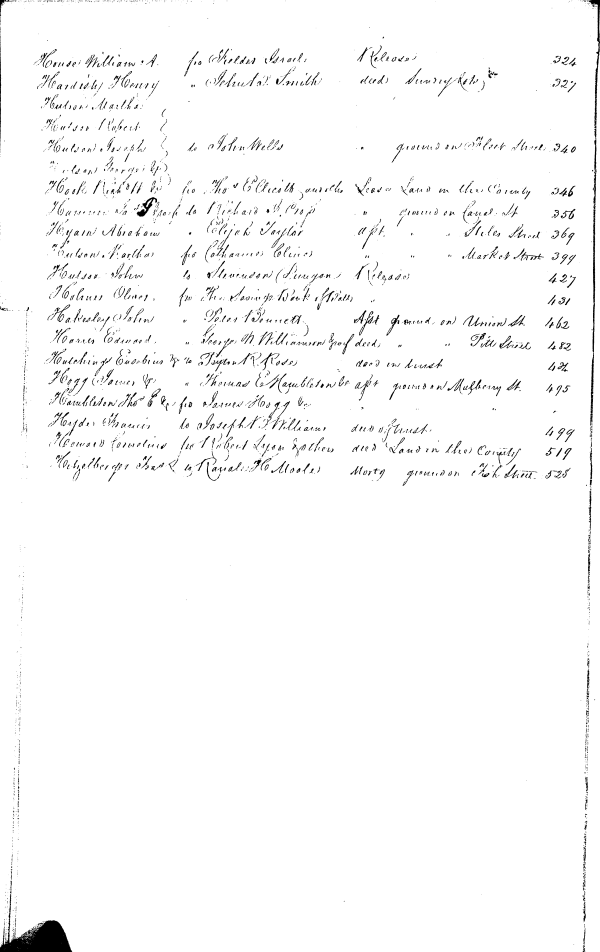 House William A. fro Fielder Israel Release 324
Hardisty Henry " John Smith deed Sundry Lots &c 327
Hutson Martha
Hutson Robert
Hutson Joseph to John Wells " ground on Fleet Street 340
Hutson George &c
Hook fro Thos Ellicott and others Lease Land in the County 346
to Richard " ground on Land St 356
Hyam Abraham " Elijah Taylor asst. " " Stiles Street 369
Hutson Martha fro Catharine Cline " " " Market Street 399
Hutson John to Stevenson Release 427
Holmes Oliver fro The Savings Bank of Balto " 431
Hakesley John " Peter Bennett Asst ground on Union St. 462
Edward " George W. Williamson deed " " Pitt Street 482
Hutchings Eusebius &c to R Rose deed in trust
Hogg James &c " Thomas E Hambleton &c asst ground on Mulberry St. 495
Hambleton Thos E &c fro James Hogg &c " " "
Hyder Francis to Joseph Williams deed of trust 499
Howard Cornelius fro Robert Lyon & others deed Land in the County 519
to H Moale Mortg ground on Fish Street 525